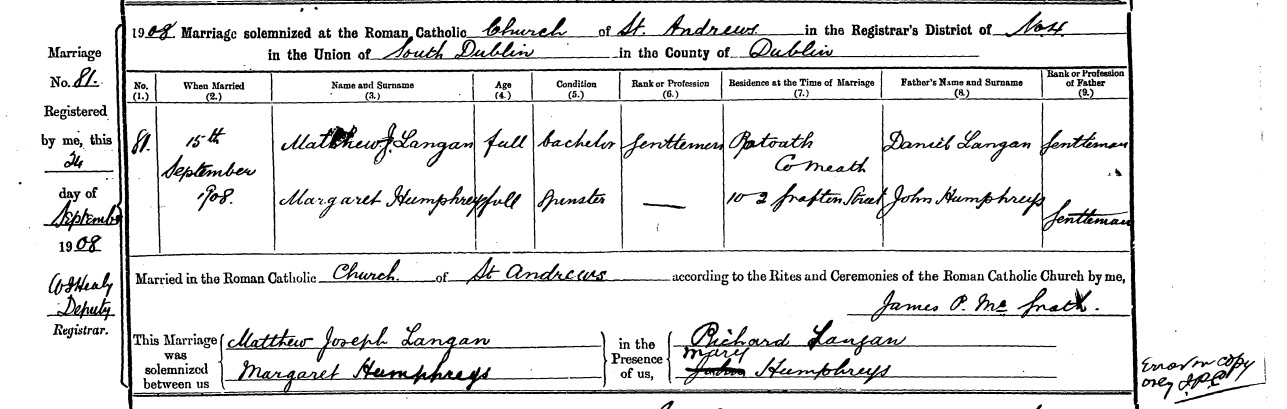 1908. Marriage solemnized at the Roman Catholic Church of St. Andrews in the Registrar's District of No 4.
in the Union of South Dublin in the County of Dublin
Marriage
No. 81.
Registered
by me, this
24
day of
September
1908
Healy
Deputy
Registrar.
No. (1.) When Married (2.) Name and Surname (3.) Age (4.) Condition (5.) Rank or Profession (6.) Residence at the Time of Marriage (7.) Father's Name and Surname (8.) Rank or Profession of Father (9.)
81. 15th September 1908. Matthew J. Langan full bachelor Gentleman Ratoath Co Meath Daniel Langan Gentleman
Margaret Humphreys full Spinster — 102 Grafton Street John Humphreys Gentleman
Married in the Roman Catholic Church. of St Andrews according to the Rites and Ceremonies of the Roman Catholic Church by me,
James P. Mc Grath.
This Marriage was solemnized between us
Matthew Joseph Langan
Margaret Humphreys
in the Presence of us,
Richard Langan
Mary Humphreys
Error in copy
only